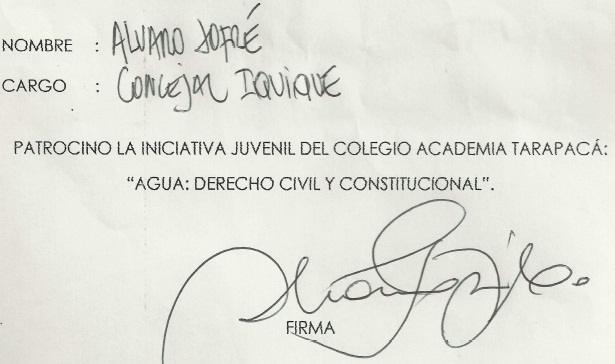 NOMBRE : ALVARO JOFRÉ
CARGO : CONCEJAL IQUIQUE
PATROCINO LA INICIATIVA JUVENIL DEL COLEGIO ACADEMIA TARAPACÁ:
“AGUA: DERECHO CIVIL Y CONSTITUCIONAL”.
FIRMA